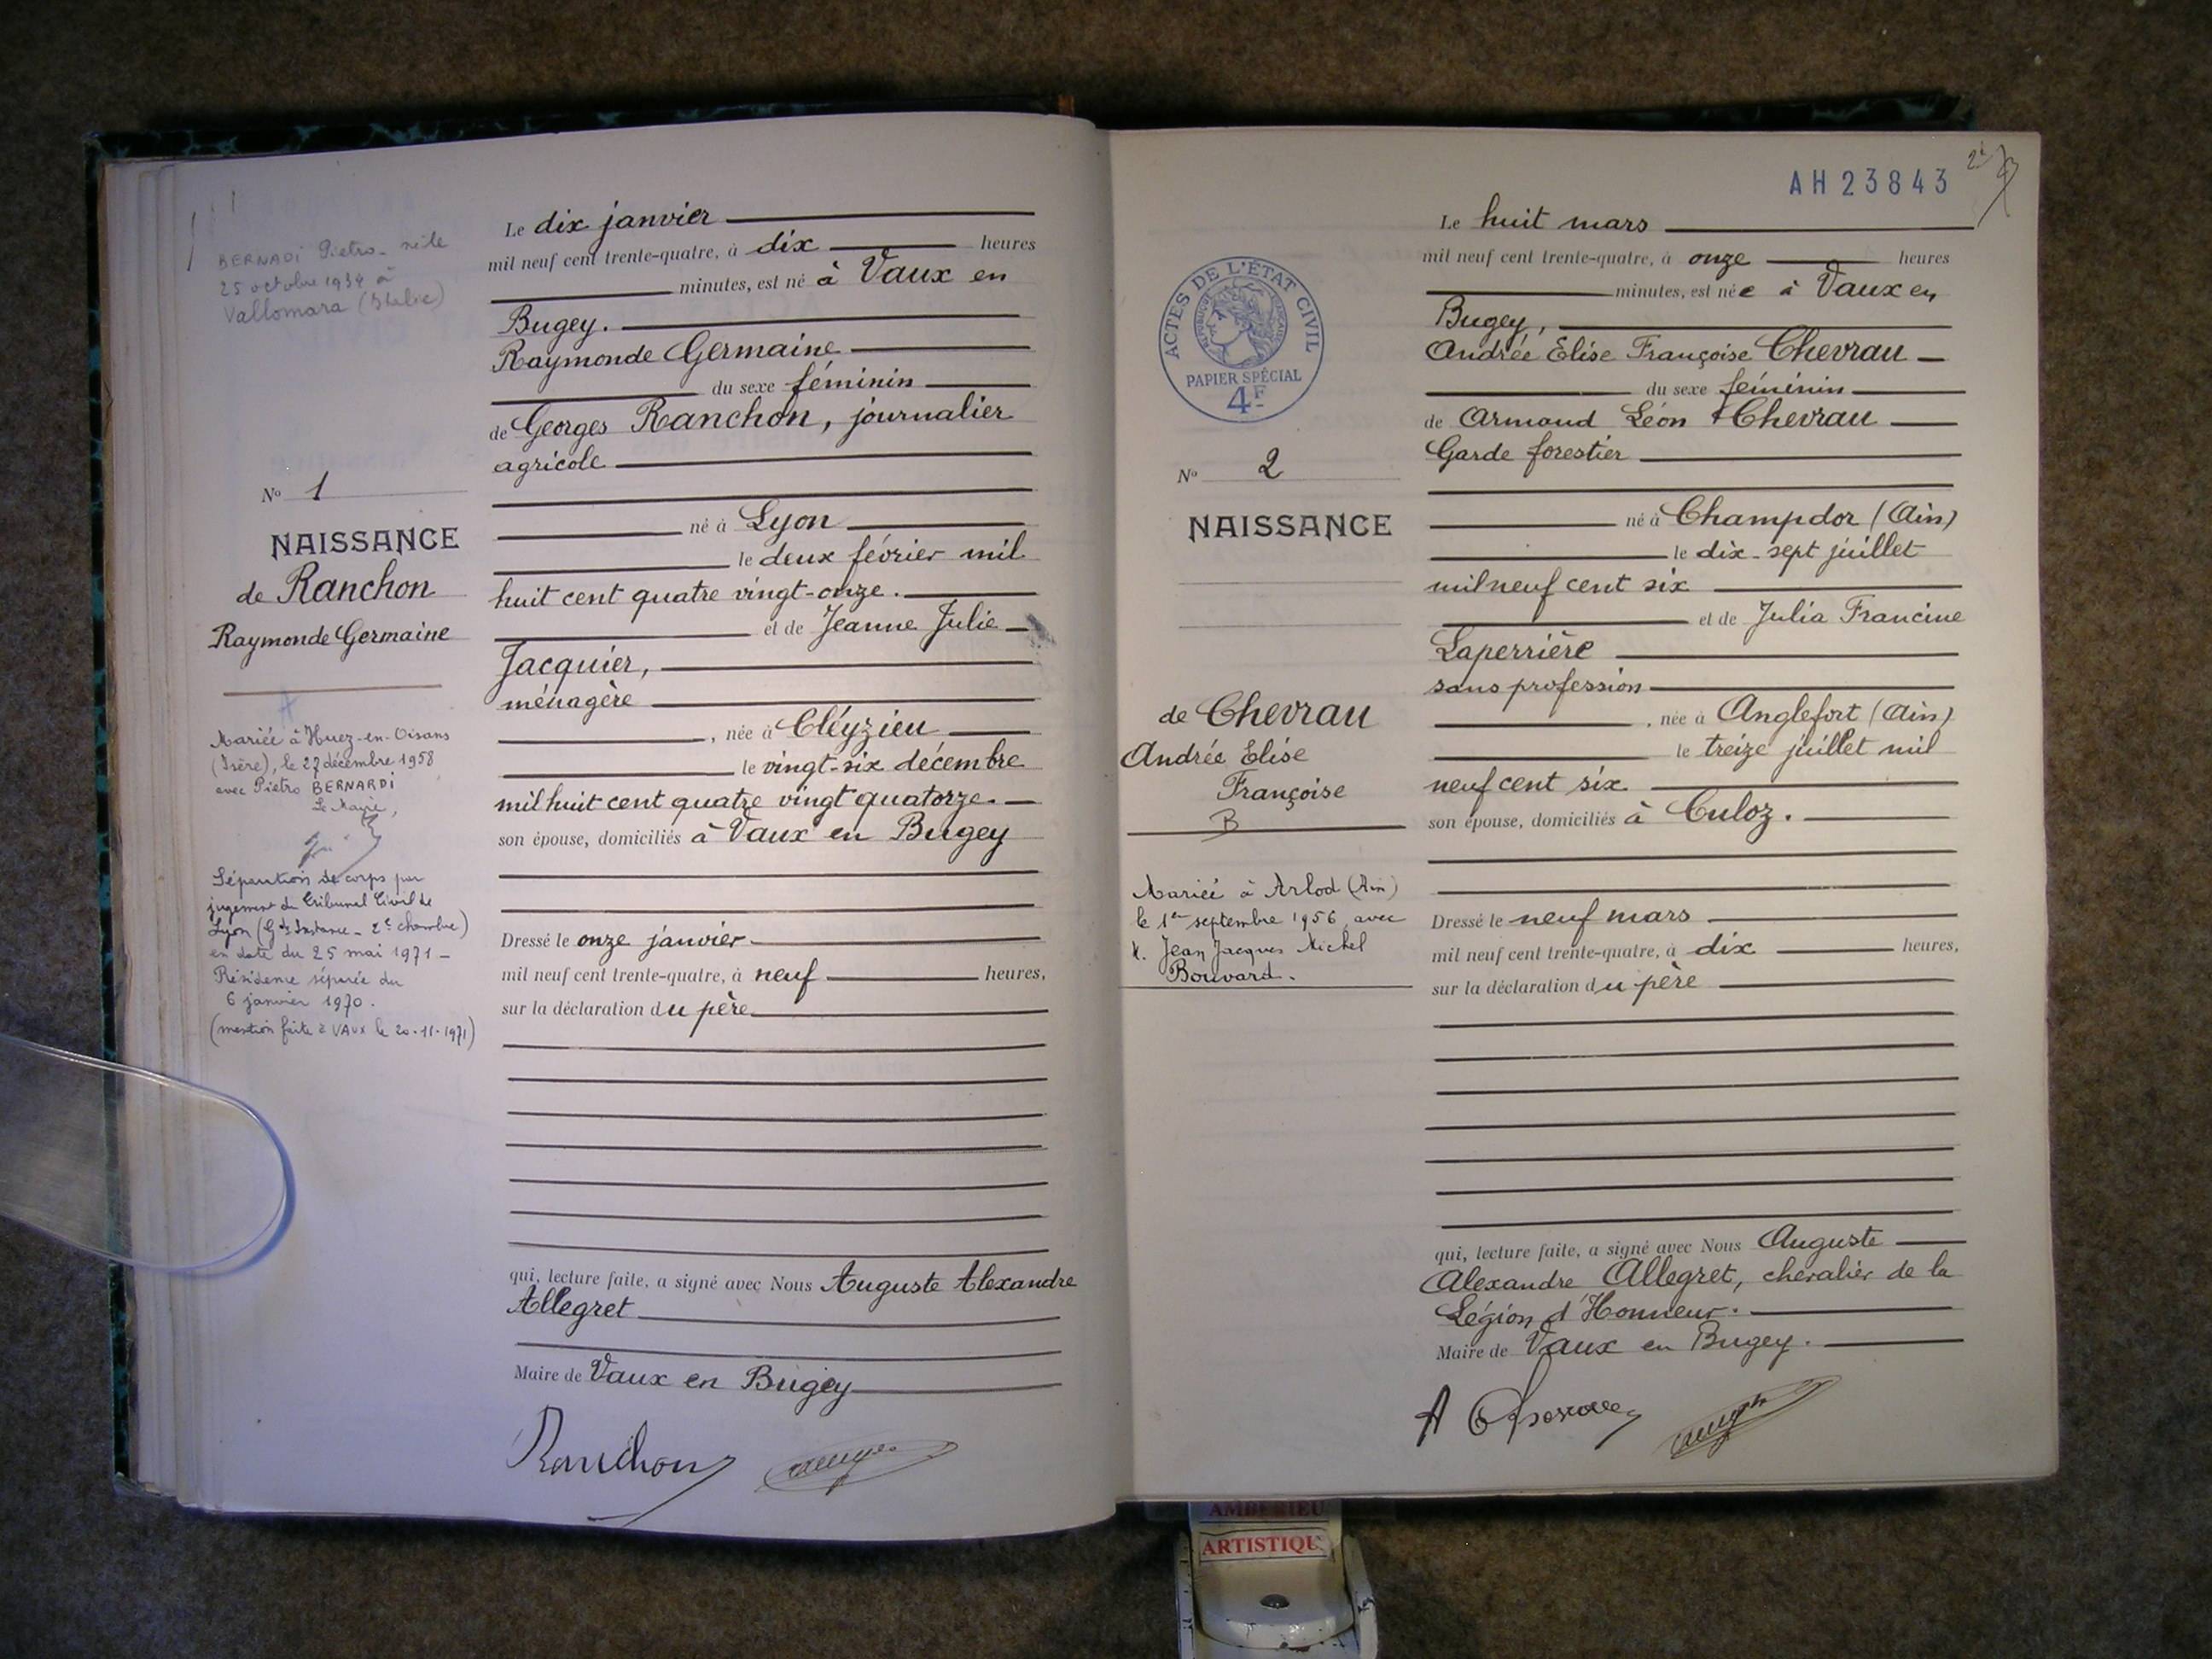 BERNADI Pietro - né le
25 octobre 1934 à
Vallomara (Italie)
N° 1
NAISSANCE
de Ranchon
Raymonde Germaine
Mariée à Huez-en-Oisans
(Isère), le 27 décembre 1958
avec Pietro BERNARDI
Le Maire,
Séparation de corps par
jugement du Tribunal Civil de
Lyon (Gde Instance - 2e chambre)
en date du 25 mai 1971 -
Résidence séparée du
6 janvier 1970.
(mention faite à VAUX le 20-11-1971)
Le dix janvier
mil neuf cent trente-quatre, à dix heures
minutes, est né à Vaux en
Bugey.
Raymonde Germaine
du sexe féminin
de Georges Ranchon, journalier
agricole
né à Lyon
le deux février mil
huit cent quatre vingt-onze.
et de Jeanne Julie
Jacquier,
ménagère
, née à Cléyzieu
le vingt-six décembre
mil huit cent quatre vingt quatorze.
son épouse, domiciliés à Vaux en Bugey
Dressé le onze janvier
mil neuf cent trente-quatre, à neuf heures,
sur la déclaration du père
qui, lecture faite, a signé avec Nous Auguste Alexandre
Allegret
Maire de Vaux en Bugey
Ranchon
AH 23843
ACTES DE L'ÉTAT CIVIL
RÉPUBLIQUE FRANÇAISE
PAPIER SPÉCIAL
4F
N° 2
NAISSANCE
de Chevrau
Andrée Elise
Françoise
B
Mariée à Arlod (Ain)
le 1er septembre 1956, avec
M. Jean Jacques Michel
Bouvard.
Le huit mars
mil neuf cent trente-quatre, à onze heures
minutes, est née à Vaux en
Bugey,
Andrée Elise Françoise Chevrau
du sexe féminin
de Armand Léon Chevrau
Garde forestier
né à Champdor (Ain)
le dix-sept juillet
mil neuf cent six
et de Julia Francine
Laperrière
sans profession
, née à Anglefort (Ain)
le treize juillet mil
neuf cent six
son épouse, domiciliés à Culoz.
Dressé le neuf mars
mil neuf cent trente-quatre, à dix heures,
sur la déclaration du père
qui, lecture faite, a signé avec Nous Auguste
Alexandre Allegret, chevalier de la
Légion d'Honneur.
Maire de Vaux en Bugey.
AMBERIEU
ARTISTIQU